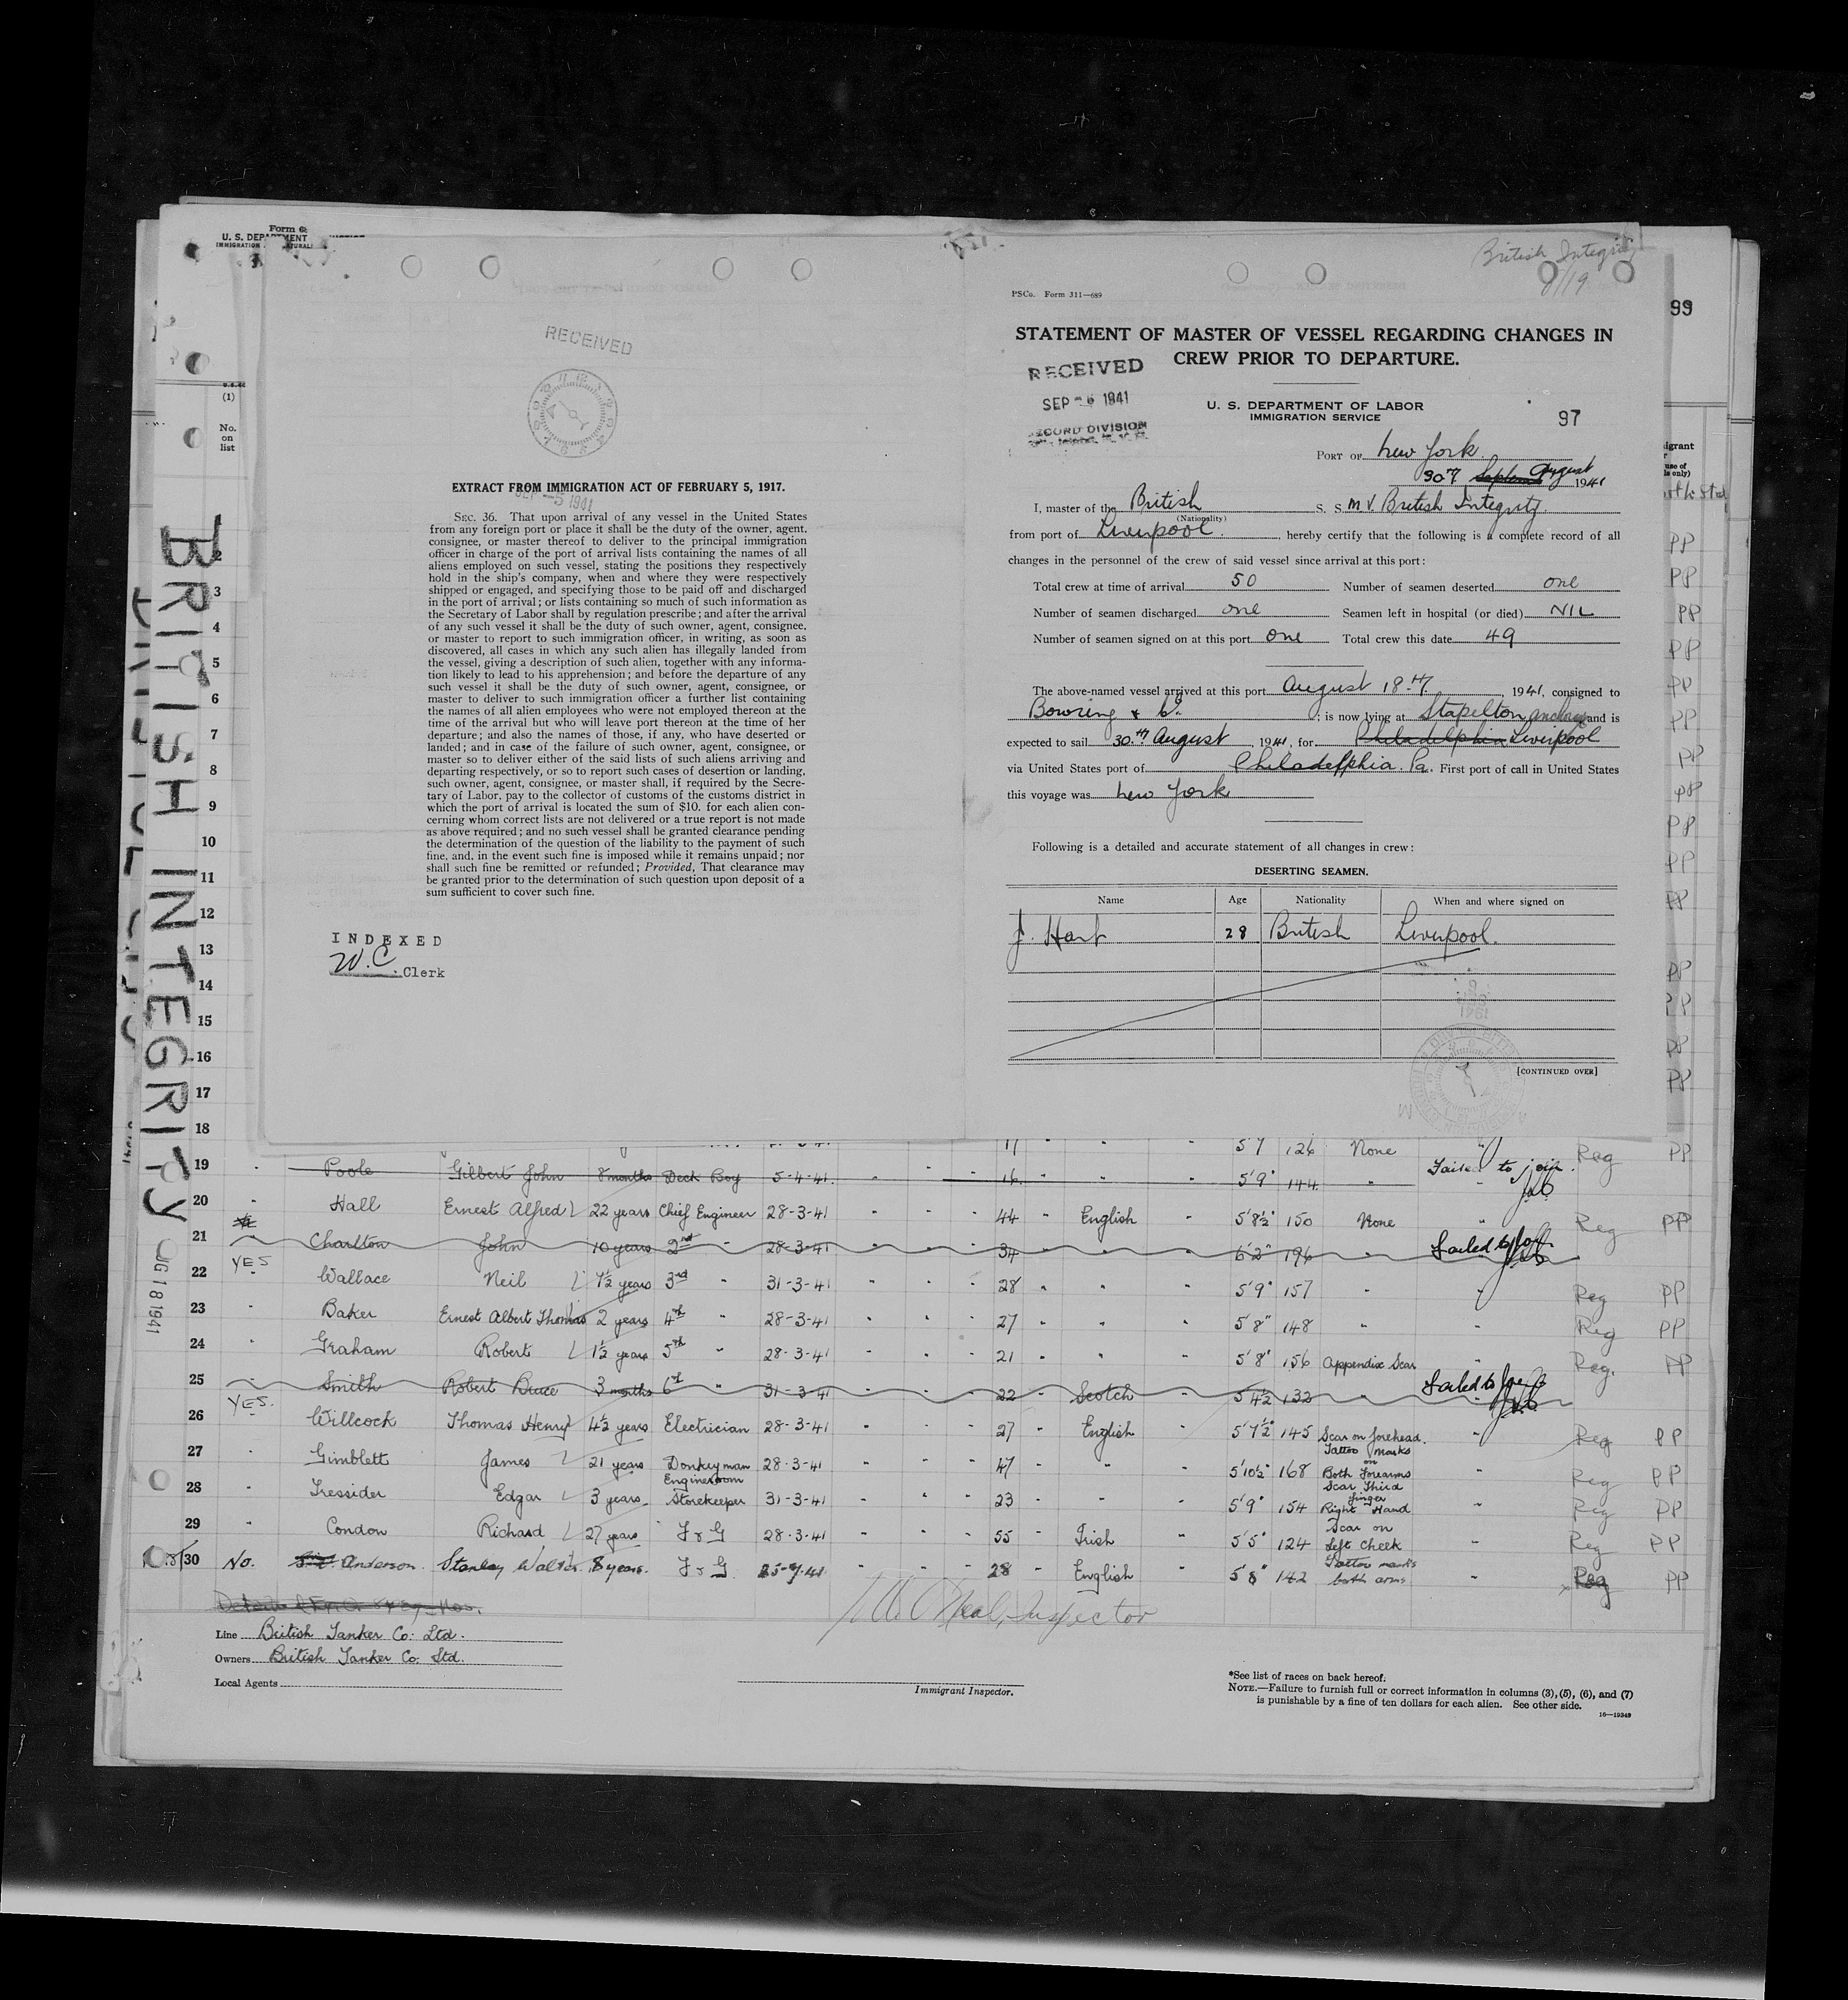 Form 6
U. S. DEPARTMENT
IMMIGRATION
(1)
No.
on
list
BRITISH INTEGRITY
AUG 18 1941
RECEIVED
SEP -5 1941
EXTRACT FROM IMMIGRATION ACT OF FEBRUARY 5, 1917.
SEC. 36. That upon arrival of any vessel in the United States
from any foreign port or place it shall be the duty of the owner, agent,
consignee, or master thereof to deliver to the principal immigration
officer in charge of the port of arrival lists containing the names of all
aliens employed on such vessel, stating the positions they respectively
hold in the ship's company, when and where they were respectively
shipped or engaged, and specifying those to be paid off and discharged
in the port of arrival; or lists containing so much of such information as
the Secretary of Labor shall by regulation prescribe; and after the arrival
of any such vessel it shall be the duty of such owner, agent, consignee,
or master to report to such immigration officer, in writing, as soon as
discovered, all cases in which any such alien has illegally landed from
the vessel, giving a description of such alien, together with any informa-
tion likely to lead to his apprehension; and before the departure of any
such vessel it shall be the duty of such owner, agent, consignee, or
master to deliver to such immigration officer a further list containing
the names of all alien employees who were not employed thereon at the
time of the arrival but who will leave port thereon at the time of her
departure; and also the names of those, if any, who have deserted or
landed; and in case of the failure of such owner, agent, consignee, or
master so to deliver either of the said lists of such aliens arriving and
departing respectively, or so to report such cases of desertion or landing,
such owner, agent, consignee, or master shall, if required by the Secre-
tary of Labor, pay to the collector of customs of the customs district in
which the port of arrival is located the sum of $10. for each alien con-
cerning whom correct lists are not delivered or a true report is not made
as above required; and no such vessel shall be granted clearance pending
the determination of the question of the liability to the payment of such
fine, and, in the event such fine is imposed while it remains unpaid; nor
shall such fine be remitted or refunded; Provided, That clearance may
be granted prior to the determination of such question upon deposit of a
sum sufficient to cover such fine.
INDEXED
W.C. Clerk
British Integrity
8/19
99
PSCo. Form 311—689
STATEMENT OF MASTER OF VESSEL REGARDING CHANGES IN
CREW PRIOR TO DEPARTURE.
RECEIVED
SEP -5 1941
RECORD DIVISION
U. S. DEPARTMENT OF LABOR
IMMIGRATION SERVICE
97
PORT OF New York
30th September August 1941
I, master of the British S. S. M.V. British Integrity.
(Nationality)
from port of Liverpool. , hereby certify that the following is a complete record of all
changes in the personnel of the crew of said vessel since arrival at this port:
Total crew at time of arrival 50 Number of seamen deserted one
Number of seamen discharged one Seamen left in hospital (or died) NIL
Number of seamen signed on at this port one Total crew this date 49
The above-named vessel arrived at this port August 18.th , 1941, consigned to
Bowring & Co. ; is now lying at Stapelton anchorage and is
expected to sail 30.th August , 1941, for Philadelphia Liverpool
via United States port of Philadelphia. Pa. First port of call in United States
this voyage was New York
Following is a detailed and accurate statement of all changes in crew:
DESERTING SEAMEN.
Name Age Nationality When and where signed on
J. Hart 28 British Liverpool.
[CONTINUED OVER]
2
3
4
5
6
7
8
9
10
11
12
13
14
15
16
17
18 17 - 5'7 126 None Reg PP
19 Poole Gilbert John 8 months Deck Boy 5-4-41. 16. 5'9" 144 " Failed to join.
20 Hall Ernest Alfred 22 years Chief Engineer 28-3-41 44 English 5'8½" 150 None " Reg PP
21 Charlton John 10 years 2nd " 28-3-41 34 6'2" 196 Failed to join
22 YES Wallace Neil 7½ years 3rd " 31-3-41 28 " 5'9" 157 " " Reg PP
23 Baker Ernest Albert Thomas 2 years 4th " 28-3-41 27 " 5'8" 148 " " Reg PP
24 Graham Robert 1½ years 5th " 28-3-41 21 " 5'8" 156 Appendix Scar " Reg. PP
25 Smith Robert Bruce 3 months 6th " 31-3-41 22 Scotch 5'4½ 132 Failed to join
26 YES. Willcock Thomas Henry 4½ years Electrician 28-3-41 27 English 5'7½" 145 Scar on forehead. " Reg PP
27 Gimblett James 21 years Donkeyman 28-3-41 47 " 5'10½" 168 Tattoo marks on Both Forearms " Reg PP
28 Tressider Edgar 3 years Engineroom Storekeeper 31-3-41 23 " 5'9" 154 Scar Third finger Right Hand " Reg PP
29 Condon Richard 27 years F & G 28-3-41 55 Irish 5'5" 124 Scar on Left Cheek " Reg PP
30 No. Anderson. Stanley Walter. 8 years. F & G 25-7-41 28 English 5'8" 142 Tattoo marks both arms " Reg PP
Line British Tanker Co. Ltd.
Owners British Tanker Co. Ltd.
Local Agents
Inspector
Immigrant Inspector.
*See list of races on back hereof.
NOTE.—Failure to furnish full or correct information in columns (3), (5), (6), and (7)
is punishable by a fine of ten dollars for each alien. See other side.
16—19349